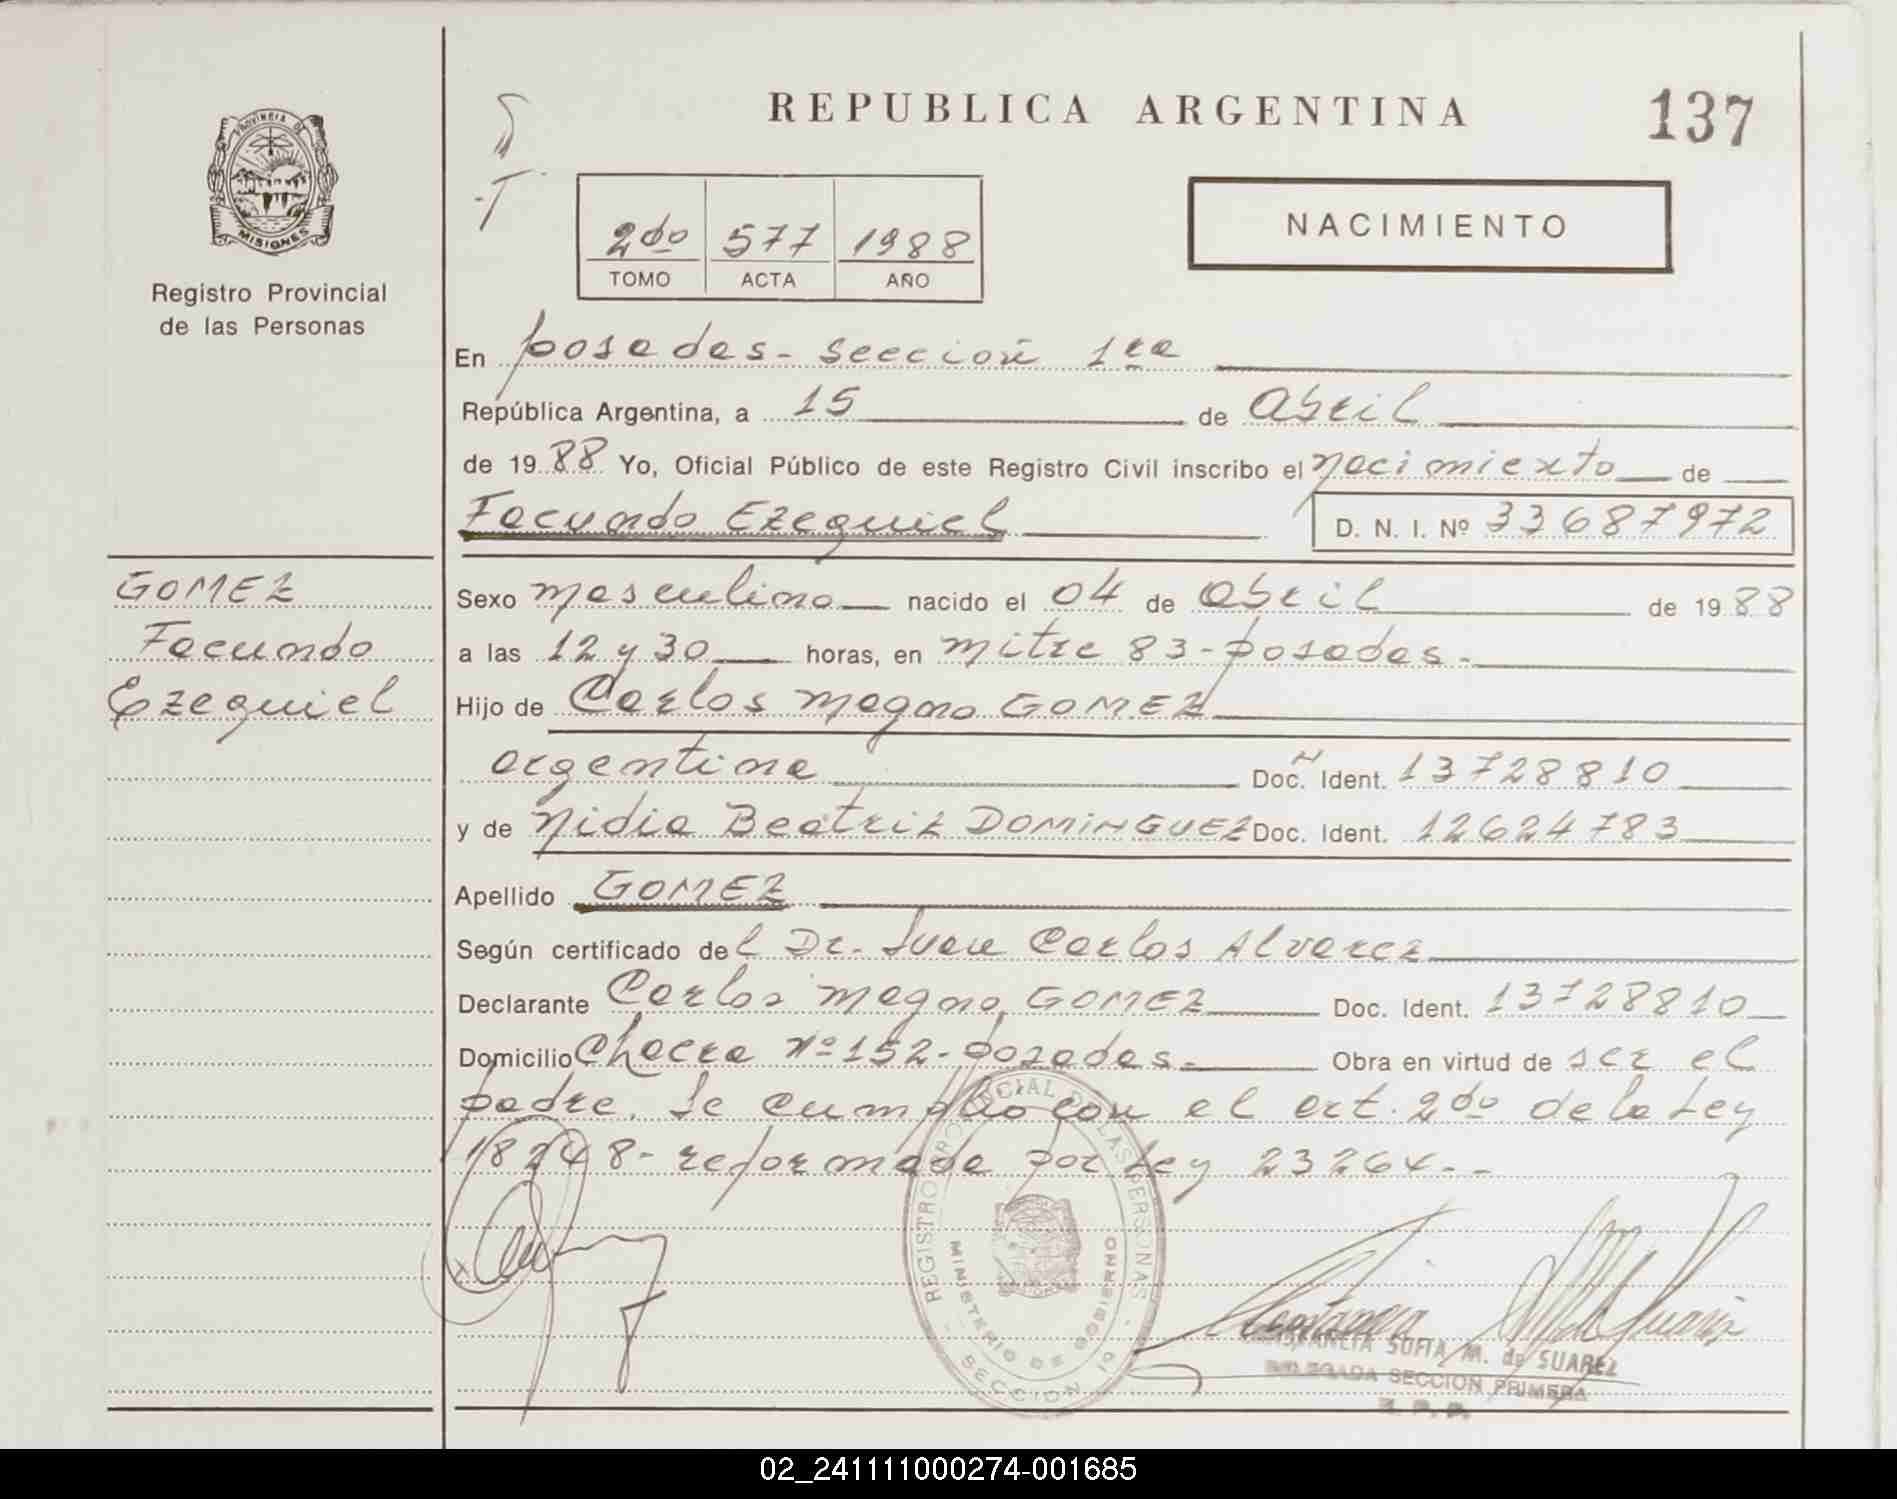 REPUBLICA ARGENTINA
137
PROVINCIA DE
MISIONES
Registro Provincial
de las Personas
2do 577 1988
TOMO ACTA AÑO
NACIMIENTO
En posadas- sección 1ra
República Argentina, a 15 de Abril
de 1988 Yo, Oficial Público de este Registro Civil inscribo el nacimiento de
Facundo Ezequiel D. N. I. Nº 33687972
GOMEZ
Facundo
Ezequiel
Sexo masculino nacido el 04 de Abril de 1988
a las 12 y 30 horas, en mitre 83-posadas-
Hijo de Carlos magno GOMEZ
argentina Doc. Ident. 13728810
y de Nidia Beatriz DOMINGUEZ Doc. Ident. 12624783
Apellido GOMEZ
Según certificado del Dr. Juan Carlos Alvarez
Declarante Carlos magno GOMEZ Doc. Ident. 13728810
Domicilio Chacra Nº 152-posadas- Obra en virtud de ser el
padre. Se cumplio con el art. 2do de la Ley
18248- reformada por Ley 23264--
REGISTRO PROVINCIAL DE LAS PERSONAS
MINISTERIO DE GOBIERNO
SECCION 1º
CONSTANCIA SOFIA M. de SUAREZ
DELEGADA SECCION PRIMERA
R. P. P.
02_241111000274-001685